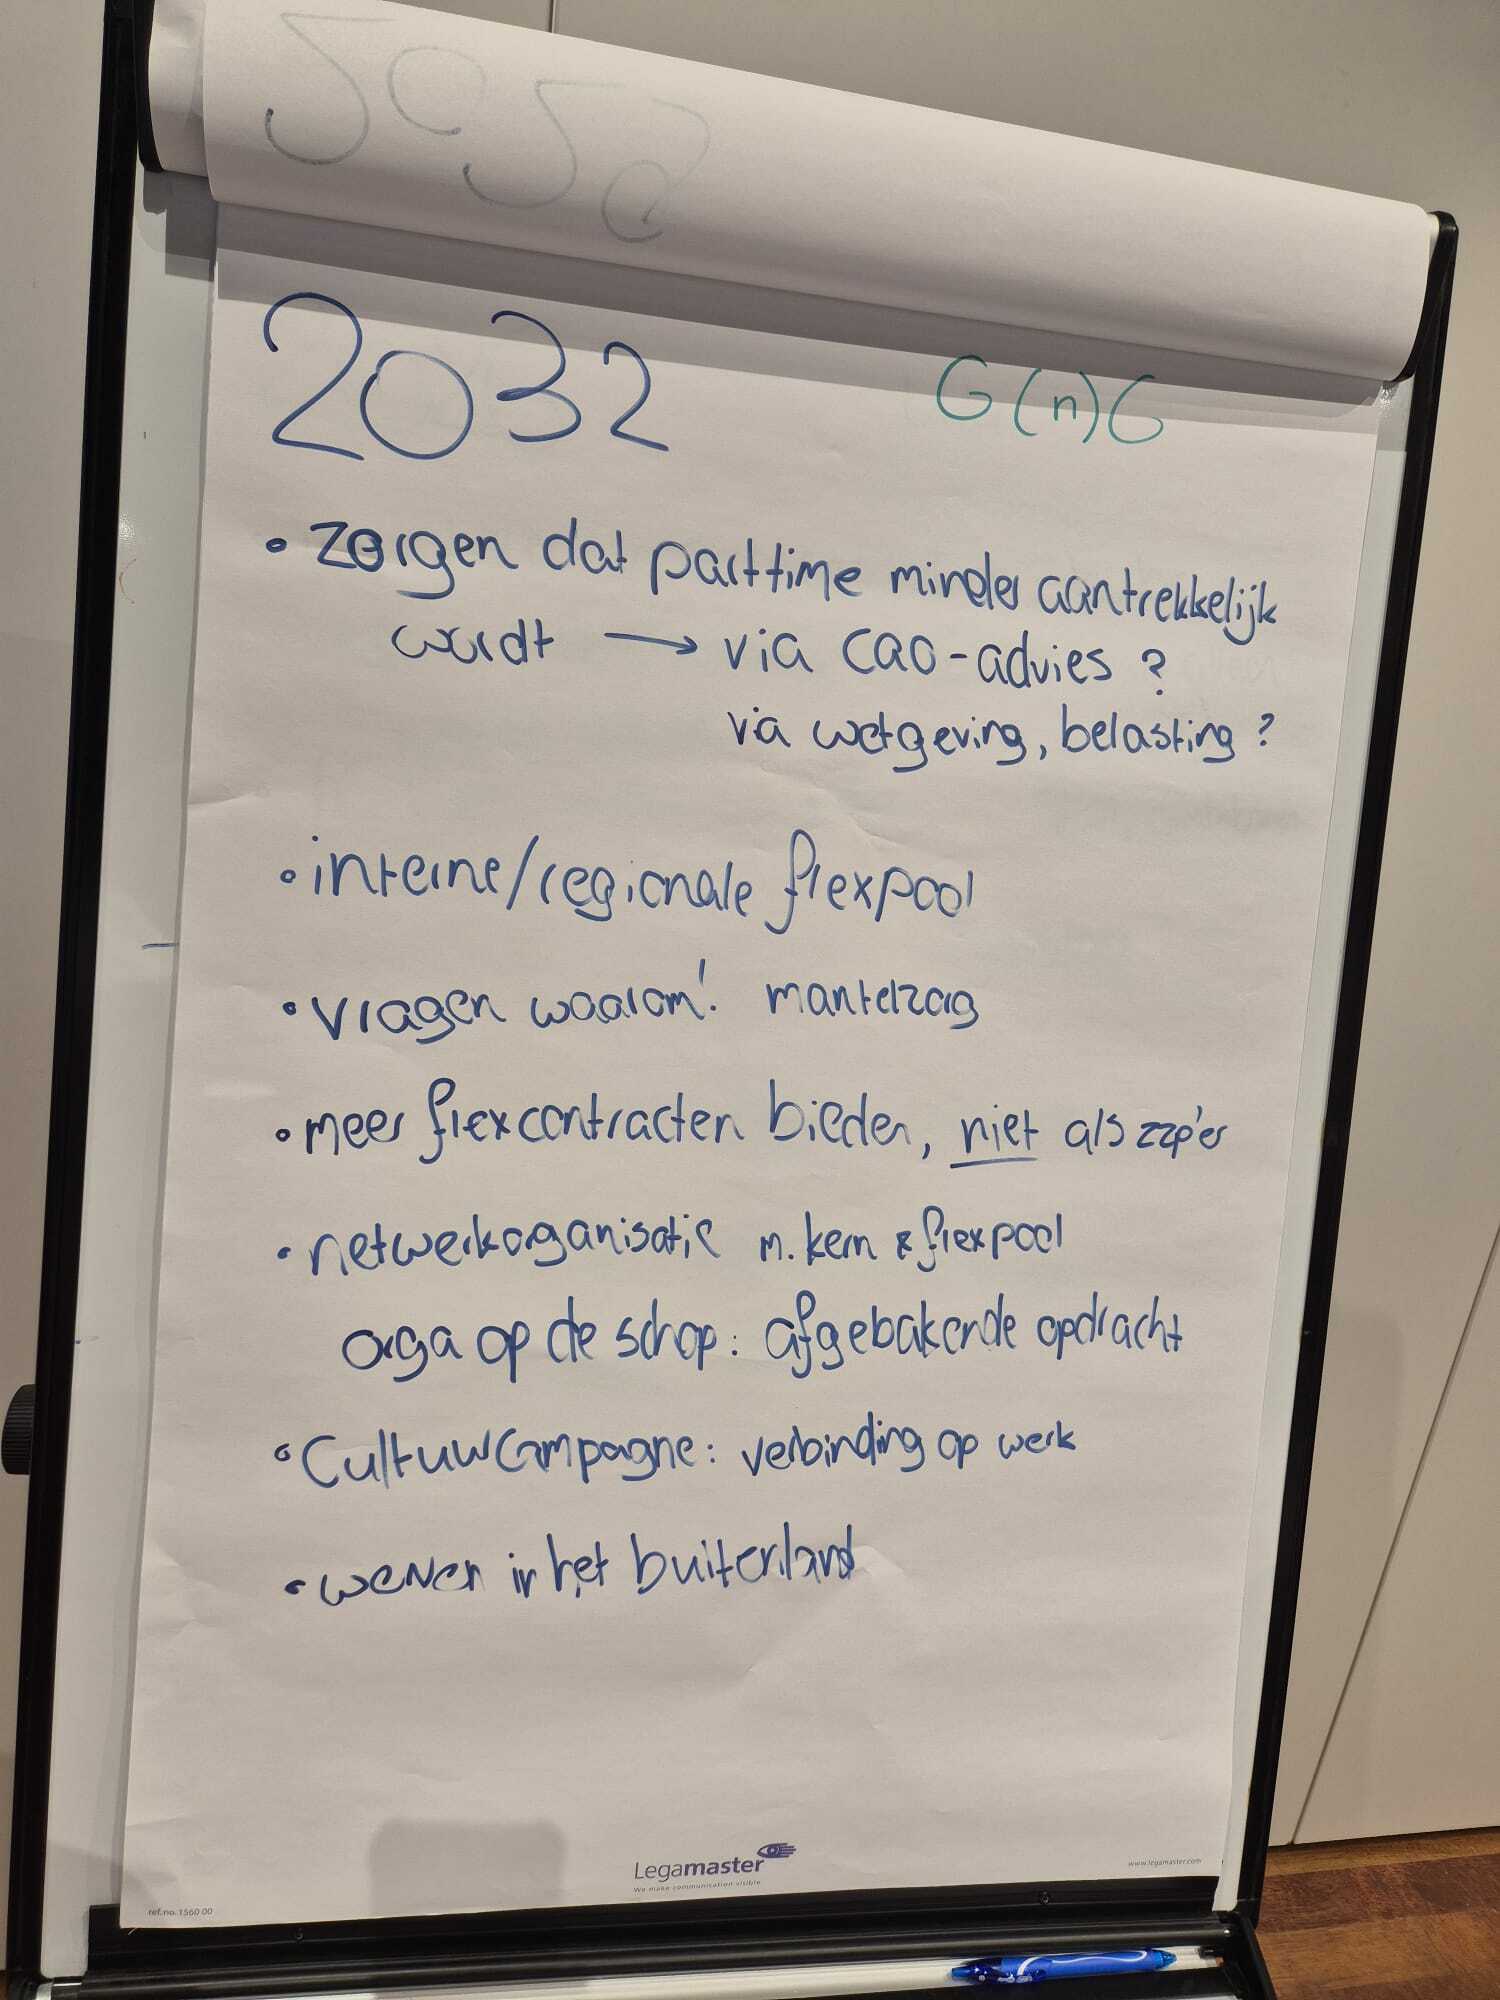 2032
G(n)G
• zorgen dat parttime minder aantrekkelijk
wordt → via cao-advies ?
via wetgeving, belasting ?
• interne/regionale flexpool
• vragen waarom! mantelzorg
• meer flexcontracten bieden, niet als zzp'er
• netwerkorganisatie m. kern & flexpool
orga op de schop: afgebakende opdracht
• Cultuurcampagne: verbinding op werk
• werven in het buitenland
Legamaster
We make communication visible
www.legamaster.com
ref.no. 1560 00